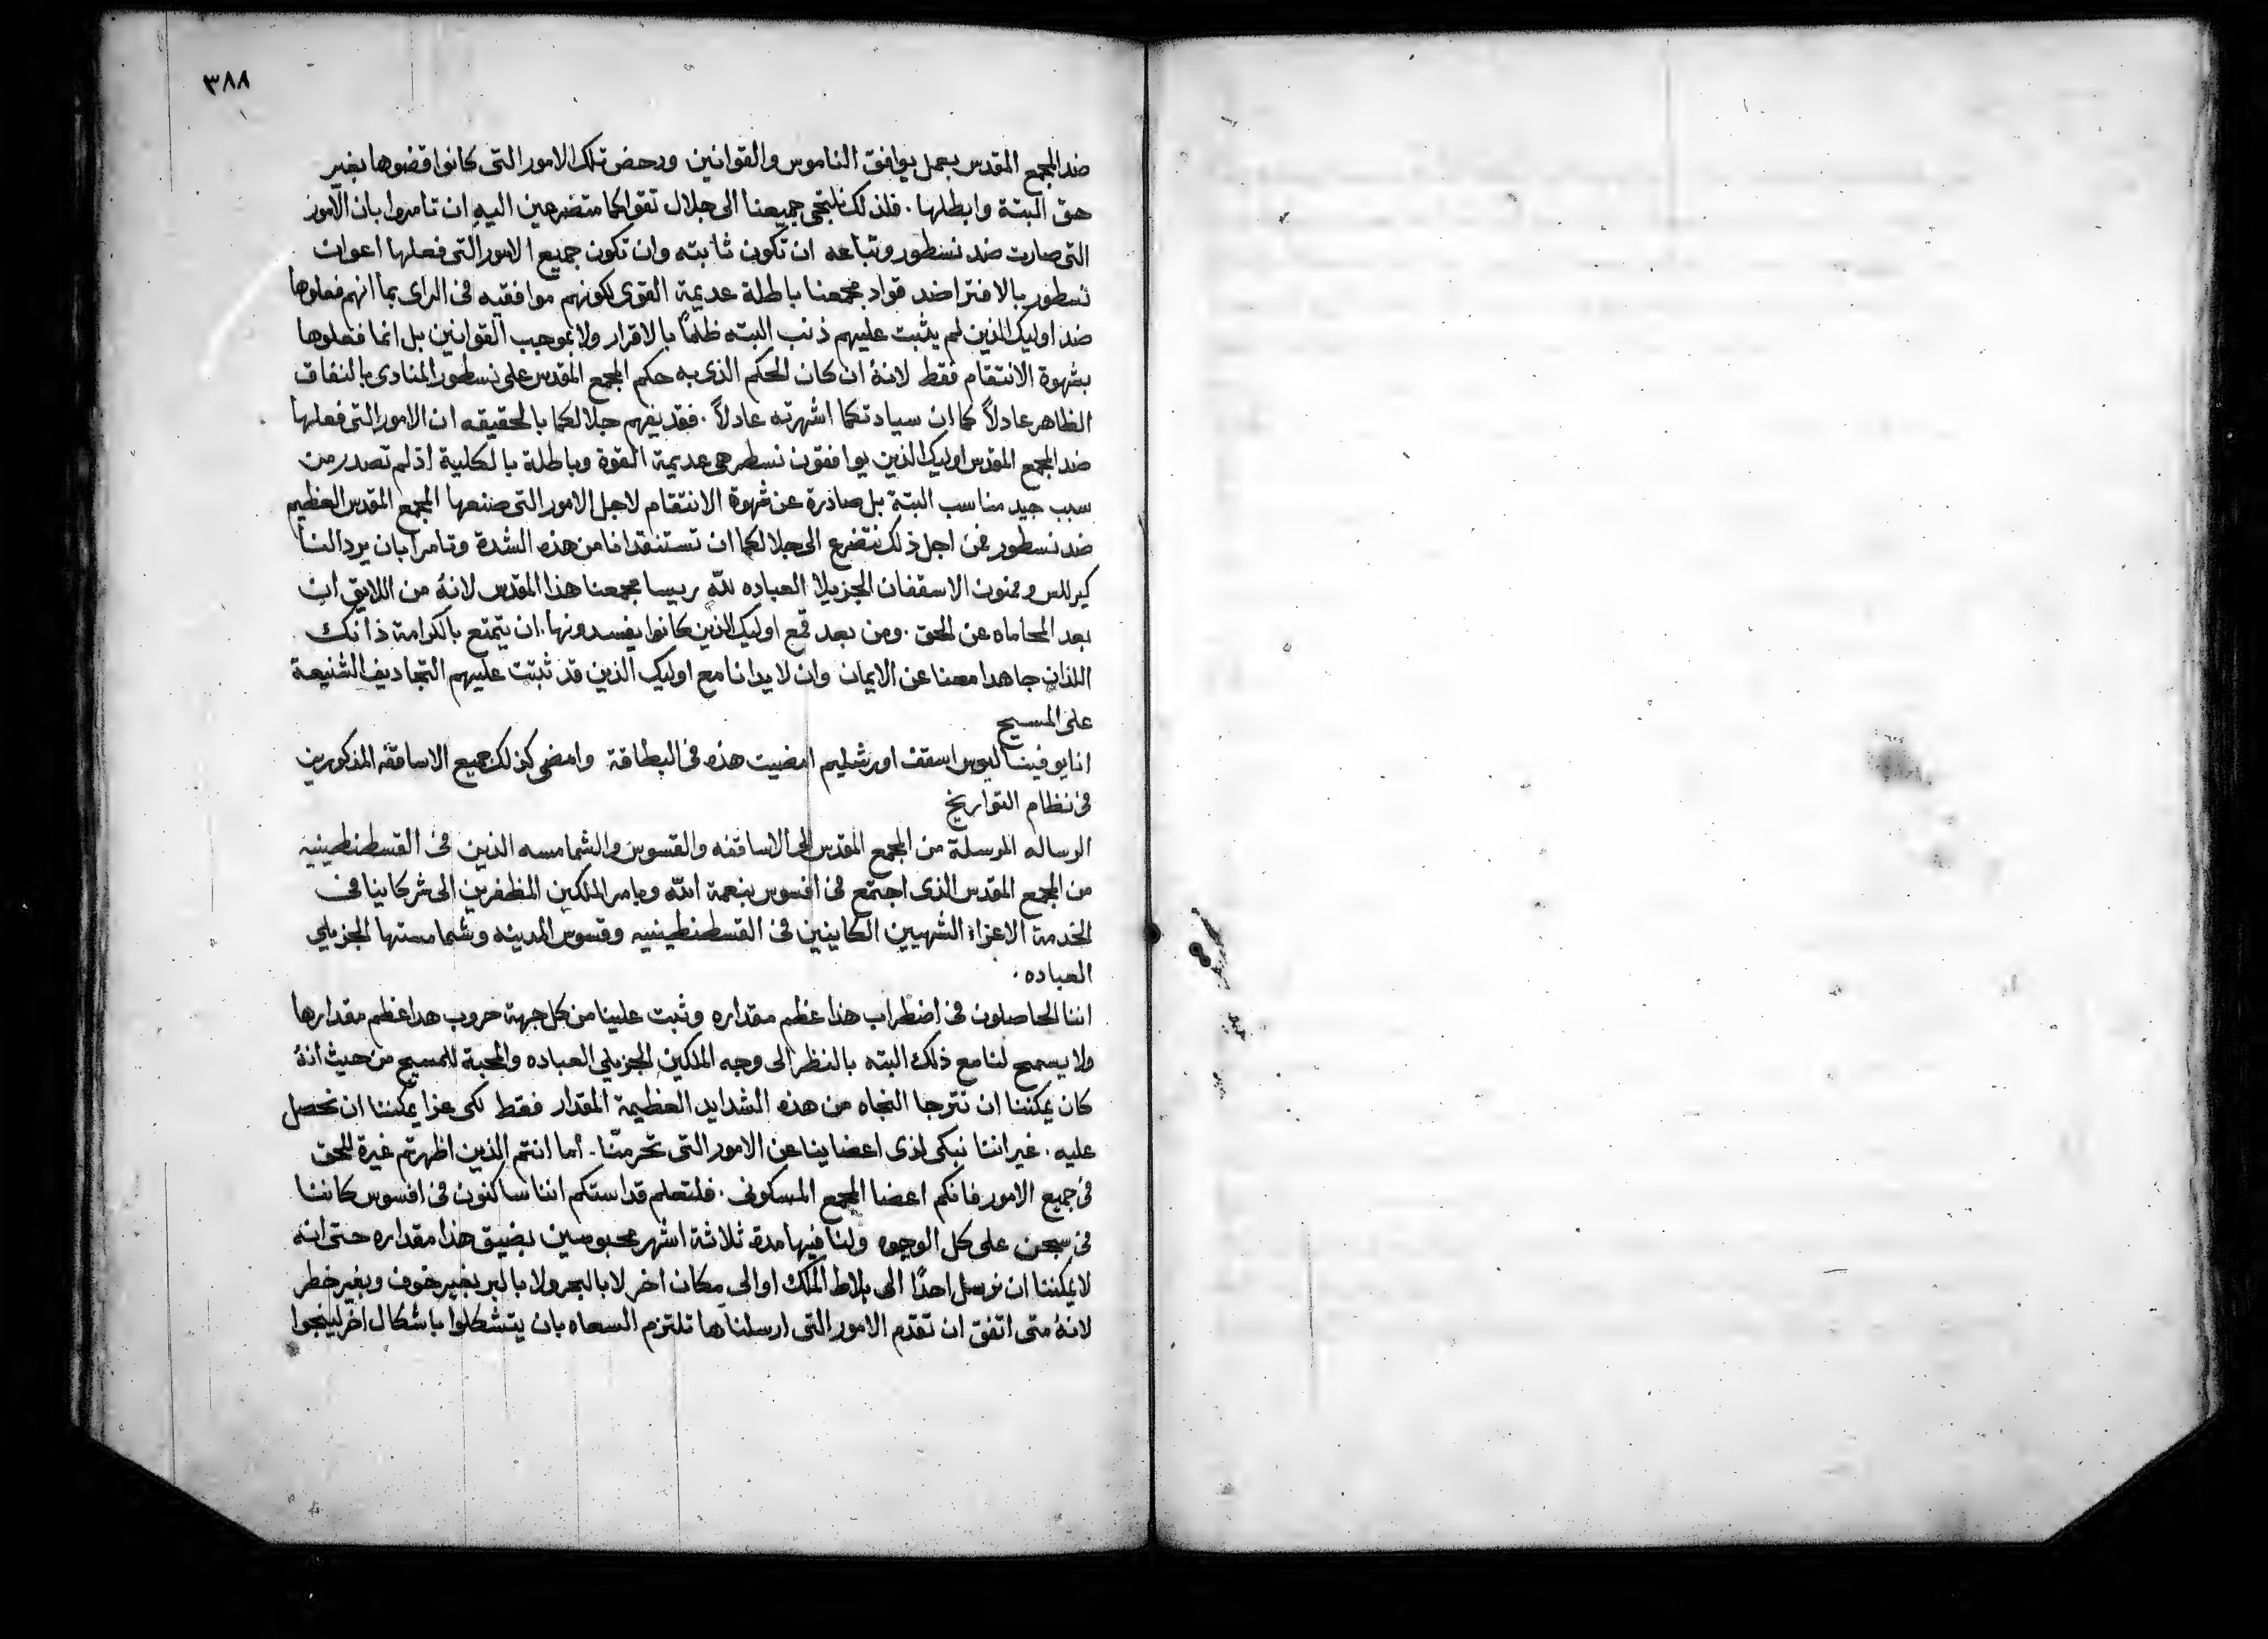 ٣٨٨
ضد المجمع المقدس بعمل يوافق الناموس والقوانين ورحض تلك الامور التى كانوا قضوها بغير
حق البتة وابطلها. فلذلك نلتجى جميعنا الى جلال تقواكما متضرعين اليه ان تامروا بان الامور
التى صارت ضد نسطور وتباعه ان تكون ثابته وان تكون جميع الامور التى فعلها اعوان
نسطور بالافترا ضد قواد مجمعنا باطلة عديمة القوى لكونهم موافقيه فى الراى بما انهم فعلوها
ضد اوليك الذين لم يثبت عليهم ذنب البته ظلمًا بالاقرار ولا بموجب القوانين بل انما فعلوها
بشهوة الانتقام فقط لانهُ ان كان الحكم الذى به حكم المجمع المقدس على نسطور المنادى بالنفاق
الظاهر عادلاً كما ان سيادتكما اشهرته عادلاً. فقد يفهم جلالكما بالحقيقه ان الامور التى فعلها
ضد المجمع المقدس اوليك الذين يوافقون نسطر هى عديمة القوة وباطلة بالكلية اذ لم تصدر من
سبب جيد مناسب البتة بل صادرة عن شهوة الانتقام لاجل الامور التى صنعها المجمع المقدس العظيم
ضد نسطور فمن اجل ذلك نتضرع الى جلالكما ان تستنقدانا من هذه الشدة وتامرا بان يردا لنا
كيرللس وممنون الاسقفان الجزيلا العباده لله رييسا مجمعنا هذا المقدس لانهُ من اللايق ان
بعد المحاماه عن الحق. ومن بعد قمع اوليك الذين كانوا يفسدونها. ان يتمتع بالكرامة ذانك
اللذان جاهدا معنا عن الايمان وان لا يدانا مع اوليك الذين قد ثبتت عليهم التجاديف الشنيعة
على المسيح
انا يوفيناليوس اسقف اورشليم امضيت هذه فى البطاقة وامضى كذلك جميع الاساقفه المذكورين
فى نظام التواريخ
الرساله المرسلة من المجمع المقدس الى الاساقفه والقسوس والشمامسه الذين فى القسطنطينيه
من المجمع المقدس الذى اجتمع فى افسوس بنعمة الله وبامر الملكين المظفرين الى شركاينا فى
الخدمة الاعزاء الشهيين الكاينين فى القسطنطينيه وقسوس المدينه وشمامستها الجزيلي
العباده.
اننا لحاصلون فى اضطراب هذا عظم مقداره وثبت علينا من كل جهة حروب هذا عظم مقدارها
ولا يسمح لنا مع ذلك البته بالنظر الى وجه الملكين الجزيلي العباده والمحبة للمسيح من حيث انهُ
كان يمكننا ان نترجا النجاه من هذه الشدايد العظيمة المقدار فقط لكى عزا يمكننا ان نحصل
عليه. غير اننا نبكى لذى اعضاينا عن الامور التى تحرمنا. اما انتم الذين اظهرتم غيرة للحق
فى جميع الامور فانكم اعضا المجمع المسكونى. فلتعلم قداستكم اننا ساكنون فى افسوس كاننا
فى سجن على كل الوجوه ولنا فيها مدة ثلاثة اشهر محبوسين بضيق هذا مقداره حتى انه
لا يمكننا ان نرسل احدًا الى بلاط الملك او الى مكان اخر لا بالبحر ولا بالبر بغير خوف وبغير خطر
لانهُ متى اتفق ان تقدم الامور التى ارسلناها تلتزم السعاه بان يتشكلوا باشكال اخر لينجوا